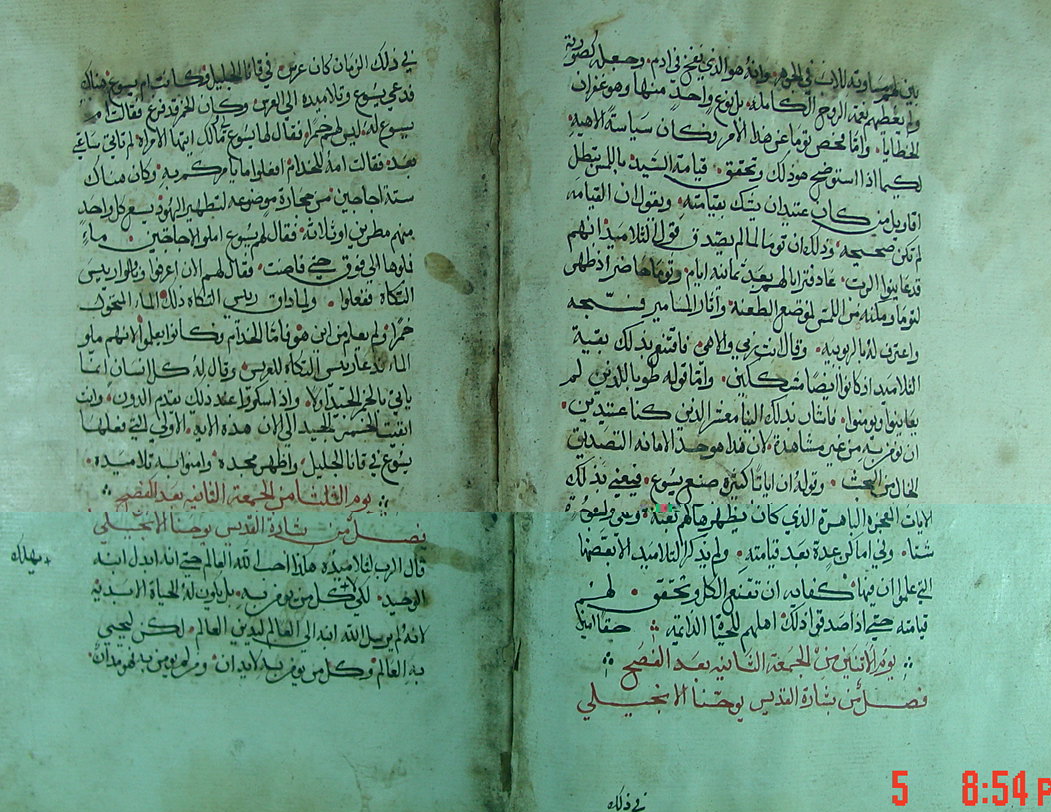 بين لهم مساوته للاب في الجوهر وانه هو الذي نفخ في ادم وجعله لصورته
ولم يعطهم نعمة الروح الكاملة بل نوع واحد منها وهو غفران
الخطايا واما فحص توما عن هذا الامر فكان سياسة الاهية
لكيما اذا استوضح هو ذلك وتحقق قيامة السيد باللمس يبطل
اقاويل من كان عتيد ان يشك بقيامته ويقول ان القيامه
لم تكن صحيحه وذلك ان توما لما لم يصدق قول التلاميذ انهم
قد عاينوا الرب عاد فترايا لهم بعد ثمانية ايام وتوما حاضر اذ ظهر
لتوما ومكنه من اللمس لموضع الطعنه واثار المسامير فسجد
واعترف له بالربوبية وقال انت ربي والاهي فاقتنع بذلك بقية
التلاميذ اذ كانوا ايضا متشككين واما قوله طوبا للذين لم
يعاينوا ويومنوا فاشار بذلك الينا معشر الذين كنا عتيدين
ان نومن به من غير مشاهدة لان هذا هو حد الامانه التصديق
الخال من البحث وقوله ان ايات كثيرة صنع يسوع فيعني بذلك
الايات المعجزه الباهرة الذي كان يظهر
شتا وفي اماكن عدة بعد قيامته ولم يذكر التلاميذ الا بعضها
التي علموا ان فيها كفايه ان تقنع الكل وتحقق لهم
قيامته حتى اذا صدقوا ذلك اهلهم للحياة الدايمه حقا امين
يوم الاثنين من الجمعة الثانيه بعد الفصح
فصل من بشارة القديس يوحنا الانجيلي
في ذلك
في ذلك الزمان كان عرس في قانا الجليل وكانت ام يسوع هناك
فدعي يسوع وتلاميذه الى العرس وكان الخمر قد فرغ فقالت ام
يسوع له ليس لهم خمرا فقال لها يسوع مالي ولك ايتها الامراة لم تاتي ساعتي
بعد فقالت امه للخدام افعلوا ما يامركم به وكان هناك
ستة اجاجين من حجارة موضوعه لتطهير اليهود يسع كل واحد
منهم مطرين او ثلاثة فقال لهم يسوع املوا الاجاجين ماء
فملوها الى فوق حتى فاضت فقال لهم الان اغرفوا وناولوا رييس
التكاة ففعلوا ولما داق رييس التكاة ذلك الماء المتحول
خمرا ولم يعلم من اين هو فاما الخدام فكانوا يعلموا لانهم ملو
الماء فدعا رييس التكاة للعريس وقال له كل انسان انما
ياتي بالخمر الجيد اولا واذا سكروا عند ذلك يقدم الدون وانت
ابقيت الخمر الجيد الى الان هذه الاية الاولى التي فعلها
يسوع في قانا الجليل واظهر مجده وامنوا به تلاميذه
يوم الثلثا من الجمعة الثانيه بعد الفصح
فصل من بشارة القديس يوحنا الانجيلي
قال الرب لتلاميذه هكذا احب الله العالم حتى انه ابدل ابنه
الوحيد لكي كل من يومن به بل يكون له الحياة الابدية
يهلك
لانه لم يرسل الله ابنه الى العالم ليدين العالم لكن ليحيي
به العالم وكل من يومن به لا يدان ومن لم يومن به فهو مدان
5 8:54 P